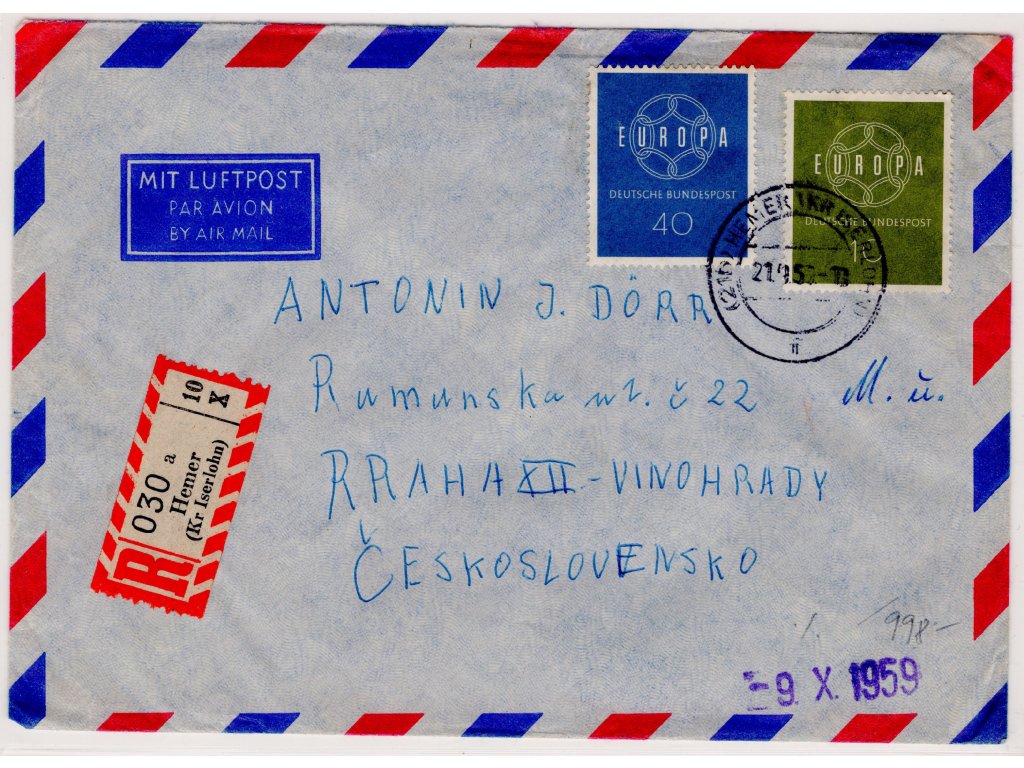 MIT LUFTPOST
PAR AVION
BY AIR MAIL
EUROPA
DEUTSCHE BUNDESPOST
40
EUROPA
DEUTSCHE BUNDESPOST
HEMER
ANTONIN J. DÖRR
Rumunska ul. č 22
M. ú.
RRAHA XII - VINOHRADY
ČESKOSLOVENSKO
R
030 a
Hemer
(Kr Iserlohn)
10
X
998.-
-9. X. 1959